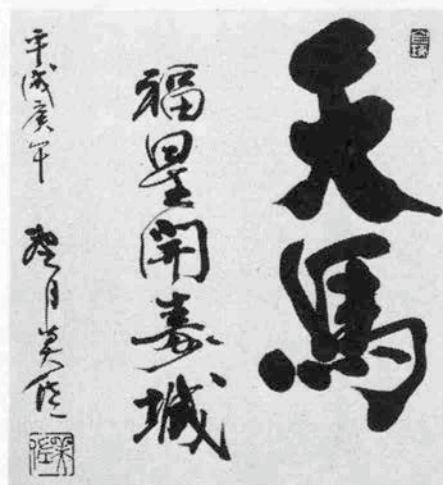 天馬
福星開寿域
平成庚午 望月美佐